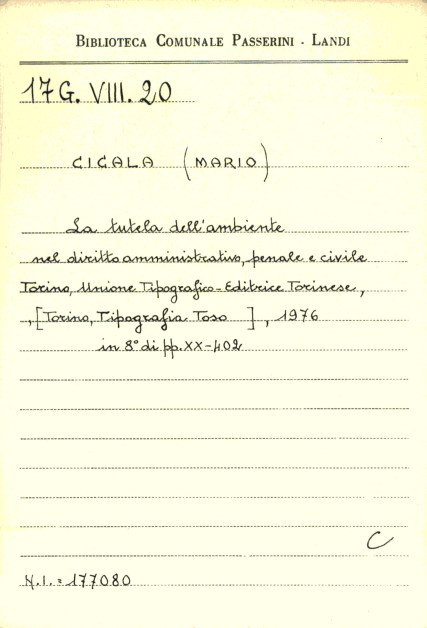 BIBLIOTECA COMUNALE PASSERINI - LANDI
17 G. VIII. 20
CICALA (MARIO)
La tutela dell'ambiente
nel diritto amministrativo, penale e civile
Torino, Unione Tipografico-Editrice Torinese,
, [Torino, Tipografia Toso ], 1976
in 8° di pp. XX-402
C
N.I. = 177080